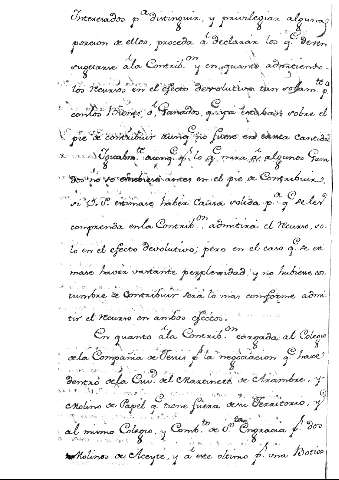 Interesados p.a distinguir, y privilegiar alguna
porcion de ellos, proceda á declarar los q.e deven
sugetarse á la Contrib.on y en quanto admitiendo
los Recursos en el efecto devolutivo tan solam.te p.r
con los Vienes ó Ganados, q.e ya estaban sobre el
pie de contribuir aunq.e no fuese en tanta Cantidad
Igualm.te aunq.e p.r lo q.e mira á algunos Gana
dos no se hubiera antes en el pie de Contribuir,
si S.S. estimase haber Causa solida p.a q.e se les
comprenda en la Contrib.on admitirá el Recurso, so
lo en el efecto devolutivo; pero en el caso q.e se esti
mase haver vastante perplexidad, y no hubiese cos
tumbre de Contribuir será lo mas conforme admi
tir el Recurso en ambos efectos.
En quanto á la Contrib.on cargada al Colegio
de la Compañia de Jesus p.r la negociacion q.e hace
dentro de la Ciu.d del Martinete de Arambre, y
Molino de Papel q.e tiene fuera de su Territorio, y
al mismo Colegio, y Comb.to de S.ta Engracia p.r dos
Molinos de Aceyte, y á este ultimo p.r una Botica